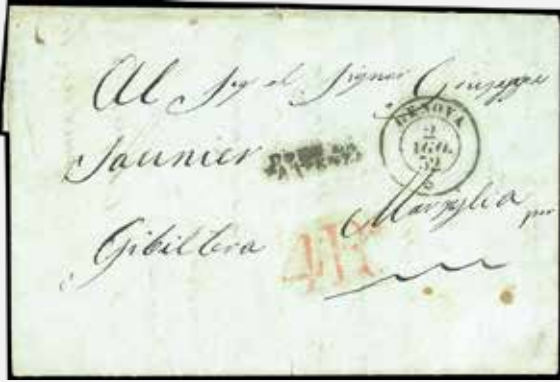 Al Sig el Signor Giuseppe
Saunier
GENOVA
2
AGO.
52
Marsiglia per
Gibilterra
4R